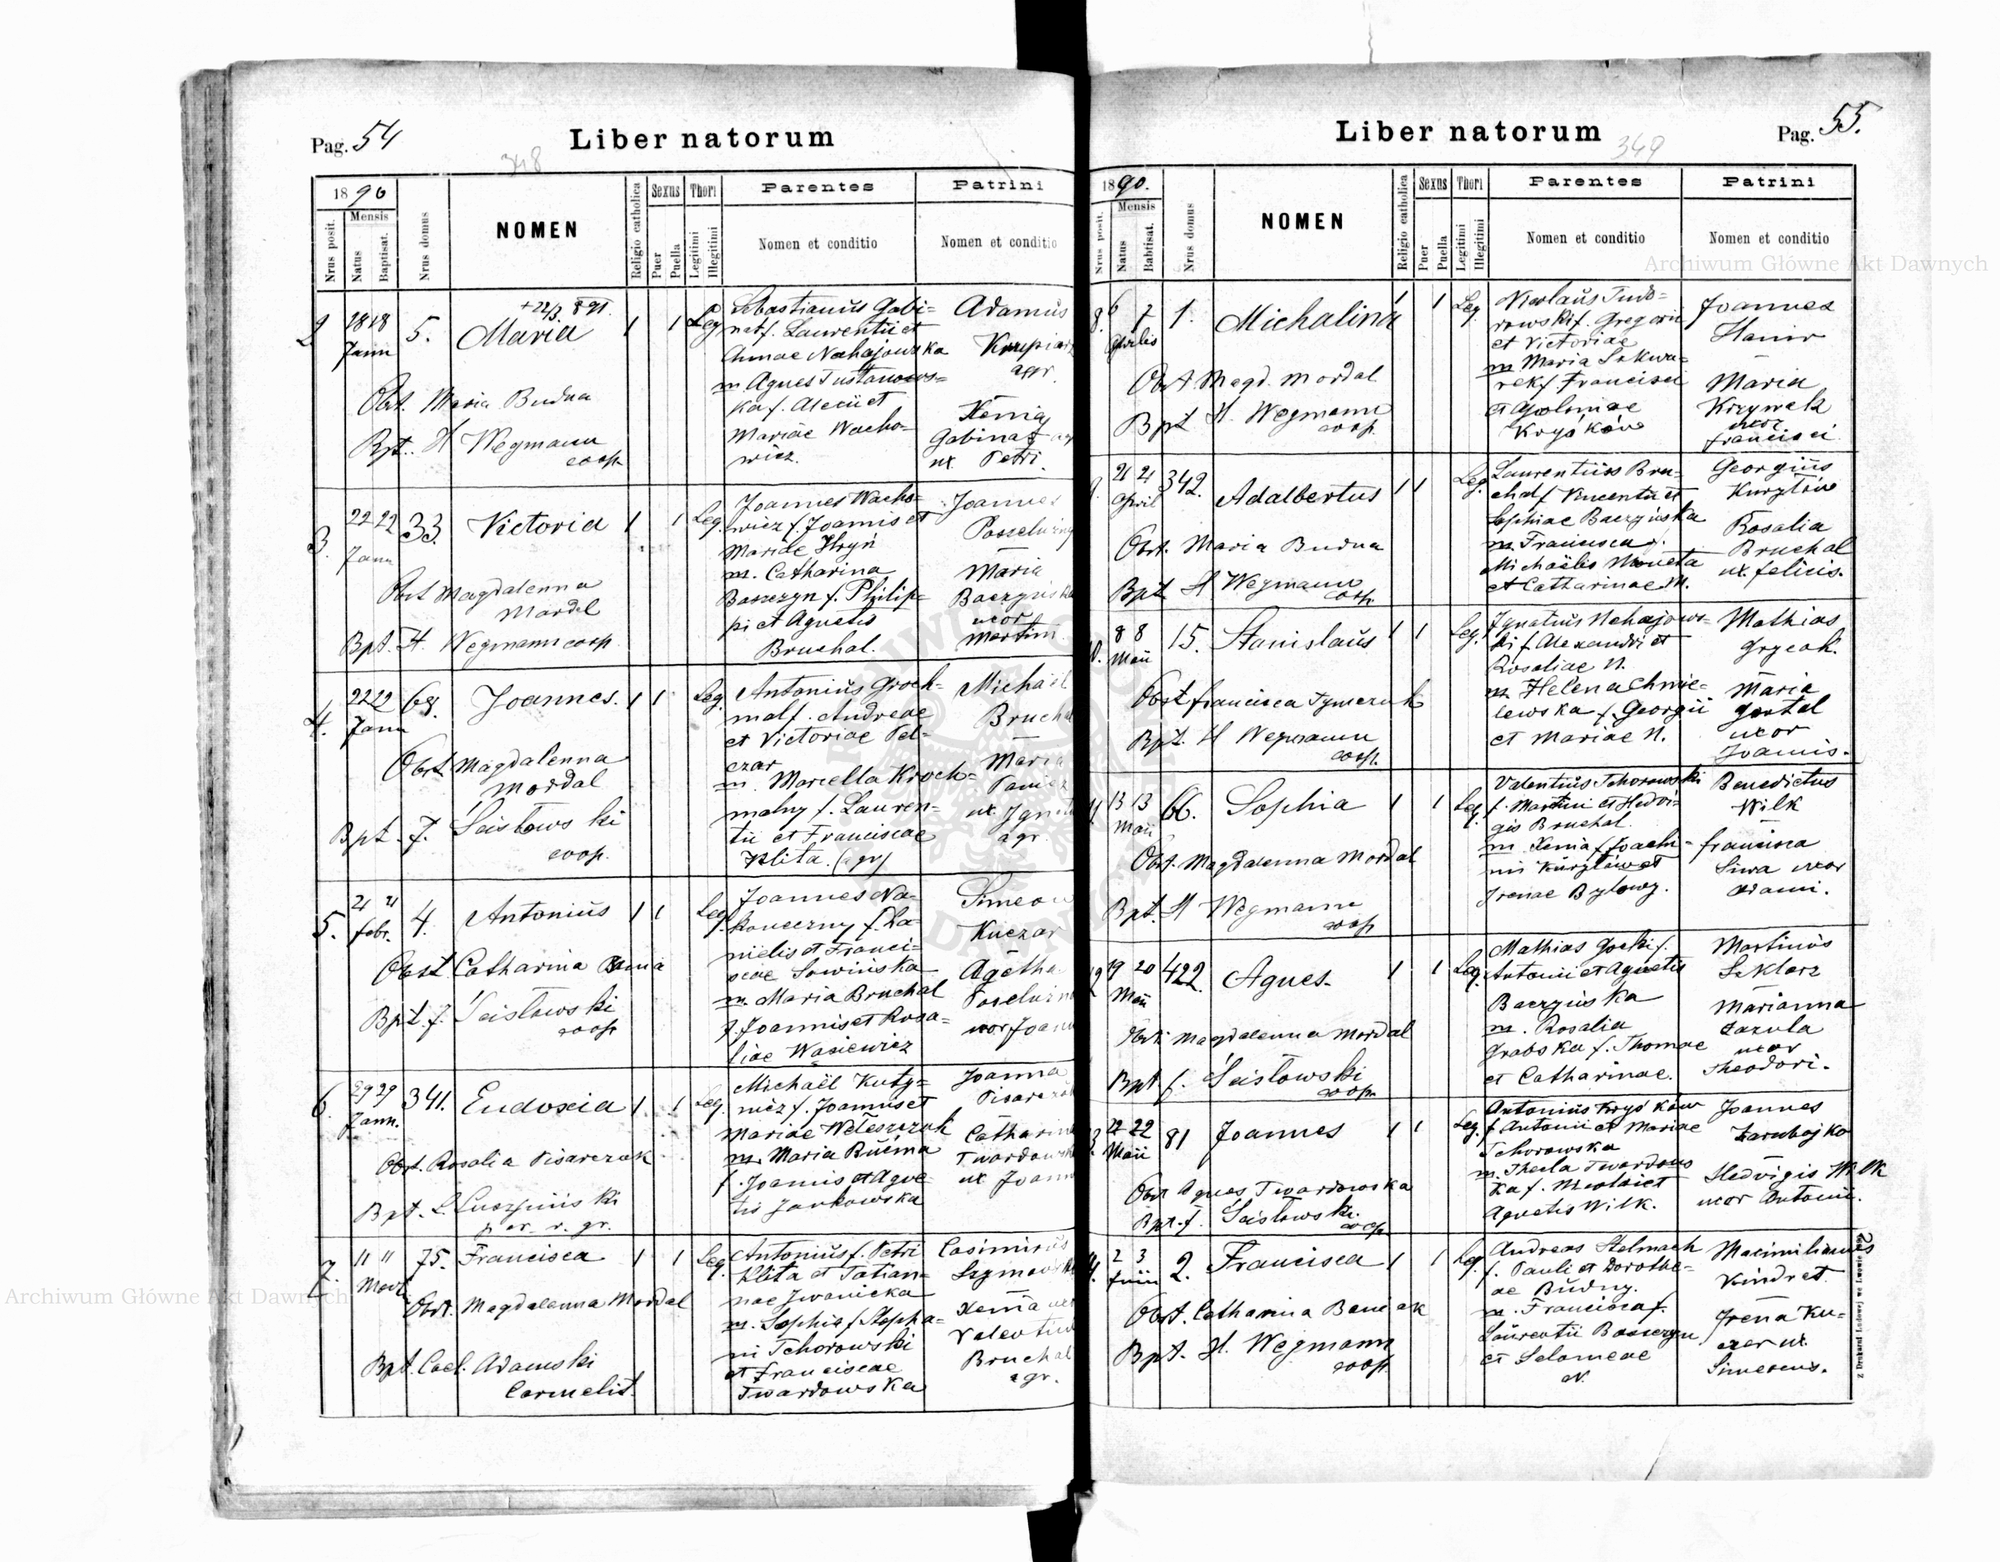 Pag. 54
Liber natorum
348
1890
Nrus posit.
Mensis
Natus
Baptisat.
Nrus domus
NOMEN
Religio catholica
Sexus
Puer
Puella
Thori
Legitimi
Illegitimi
Parentes
Nomen et conditio
Patrini
Nomen et conditio
2
18 18
Jann
5.
+ 22/3 891.
Maria
1
1
Leg
Sebastianus Gabi-
nat f. Laurentii et
Annae Nahajowska
m. Agnes Tustanows-
ka f. Alexii et
Mariae Wacho-
wicz.
Adamus
agr.
Xenia
Gabinat
ux. Petri.
Obst. Maria Budna
Bpt. H Wegmann
coop.
3.
22 22
Jann
33.
Victoria
1
1
Leg.
Joannes Wacho-
wicz f. Joannis et
Mariae Hryń
m. Catharina
Basszyn f. Philip-
pi et Agnetis
Bruchal.
Joannes
Maria
uxor
Martini
Obst Magdalenna
Mardel
Bpt. H. Wegmann coop.
4.
22 22
Jann
69.
Joannes.
1
1
Leg.
Antonius Groch-
mal f. Andreae
et Victoriae Pel-
czar
m. Marcella Kroch-
malny f. Lauren-
tii et Franciscae
Klita. (agr)
Michaël
Bruchal
Maria
agr.
Obst. Magdalenna
Mordal
Bpt. J. Ścisłowski
coop.
5.
21 21
Febr.
4.
Antonius
1
1
Leg.
Joannes Na-
koneczny f. Da-
nielis et Franci-
scae Sowińska
m. Maria Bruchal
f. Joannis et Rosa-
liae Wasiewicz
Simeon
Kuczar
Agatha
uxor Joann
Obst Catharina
Bpt. J. Ścisłowski
coop.
6.
29 29
Jann.
341.
Eudoxia
1
1
Leg.
Michaël Kuty-
wicz f. Joannis et
m. Maria
f. Joannis et Agne-
tis Jankowska
Joanna
Catharina
ux Joann
Obst. Rosalia Pisarczuk
Bpt. L. Luczyński
par. r. gr.
7.
11 11
75.
Francisca
1
1
Leg.
Antonius f. Petri
Klita et Tatian-
nae Iwanicka
m. Sophia f. Stepha-
ni Tchorowski
et Franciscae
Twardowska
Casimirus
Xenia
Valentini
Bruchal
agr.
Obst. Magdalenna Mordal
Bpt. Cael. Adamski
Carmelit.
Pag. 55.
Liber natorum
349
1890.
Nrus posit.
Mensis
Natus
Babtisat.
Nrus domus
NOMEN
Religio catholica
Sexus
Puer
Puella
Thori
Legitimi
Illegitimi
Parentes
Nomen et conditio
Patrini
Nomen et conditio
8.
6 7
Aprilis
1.
Michalina
1
1
Leg.
rowski f. Gregorii
et Victoriae
m. Maria Szkwa-
rek f. Francisci
et Apoloniae
Kryśków
Joannes
Maria
Krzywak
uxor
Francisci
Obst Magd. Mordal
Bpt H. Wegmann
coop.
9.
21 21
April
342.
Adalbertus
1
1
Leg.
Laurentius Bru-
chal f. Vincentii et
Sophiae Baczyńska
m. Francisca f.
Michaëlis Moneta
et Catharinae N.
Georgius
Kuryłów
Rosalia
Bruchal
ux. felicis.
Obst. Maria Budna
Bpt H Wegmann
coop.
10.
8 8
Maii
15.
Stanislaus
1
1
Leg.
Ignatius Nahajows-
ki f. Alexandri et
Rosaliae N.
m. Helena Chmie-
lewska f. Georgii
et Mariae N.
Mathias
Maria
uxor
Joannis.
Obst Francisca Tymczuk
Bpt. H Wegmann
coop.
11.
13 13
Maii
66.
Sophia
1
1
Leg.
Valentius Tchorowski
f. Martini et Hedvi-
gis Bruchal
m. Xenia f. Joachi-
mi Kuryłów et
Irenae Byłowy.
Benedictus
Wilk
francisca
Siwa uxor
Adami.
Obst. Magdalenna Mordal
Bpt. H Wegmann
coop
12
19 20
Maii
422.
Agnes.
1
1
Leg.
Mathias Gocki f.
Antonii et Agnetis
Baczyńska
m. Rosalia
Grabska f. Thomae
et Catharinae.
Martinus
Szklarz
Marianna
uxor
Theodori.
Obst. Magdalenna Mordal
Bpt f. Ścisłowski
coop.
13
22 22
Maii
81
Joannes
1
1
Leg.
Antonius Kryśków
f. Antonii et Mariae
Tchorowska
m. Thecla Twardows
ka f. Nicolai et
Agnetis Wilk.
Joannes
Hedvigis Wilk
uxor Antonii.
Obst Agnes Twardowska
Bpt. f. Ścisłowski.
coop
14.
2 3
Junii
2.
Francisca
1
1
Leg.
Andreas Stelmach
f. Pauli et Dorothe-
ae Budny.
m. Francisca f.
Laurentii Basszyn
et Salomeae
N.
Maximilianus
Kindrat
Irena Ku-
czar ux.
Simeonis.
Obst. Catharina Baniak
Bpt. H. Wegmann
coop.
Archiwum Główne Akt Dawnych
Archiwum Główne Akt Dawnych